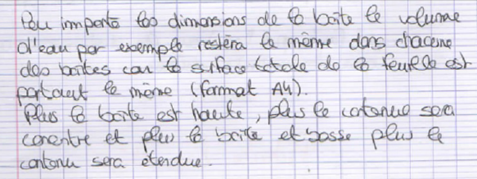 Peu importe les dimensions de la boîte le volume
d'eau par exemple restera le même dans chacune
des boîtes car la surface totale de la feuille est
partout la même (format A4).
Plus la boîte est haute, plus le contenue sera
concentre et plus la boite et basse plus le
contenu sera étendue.